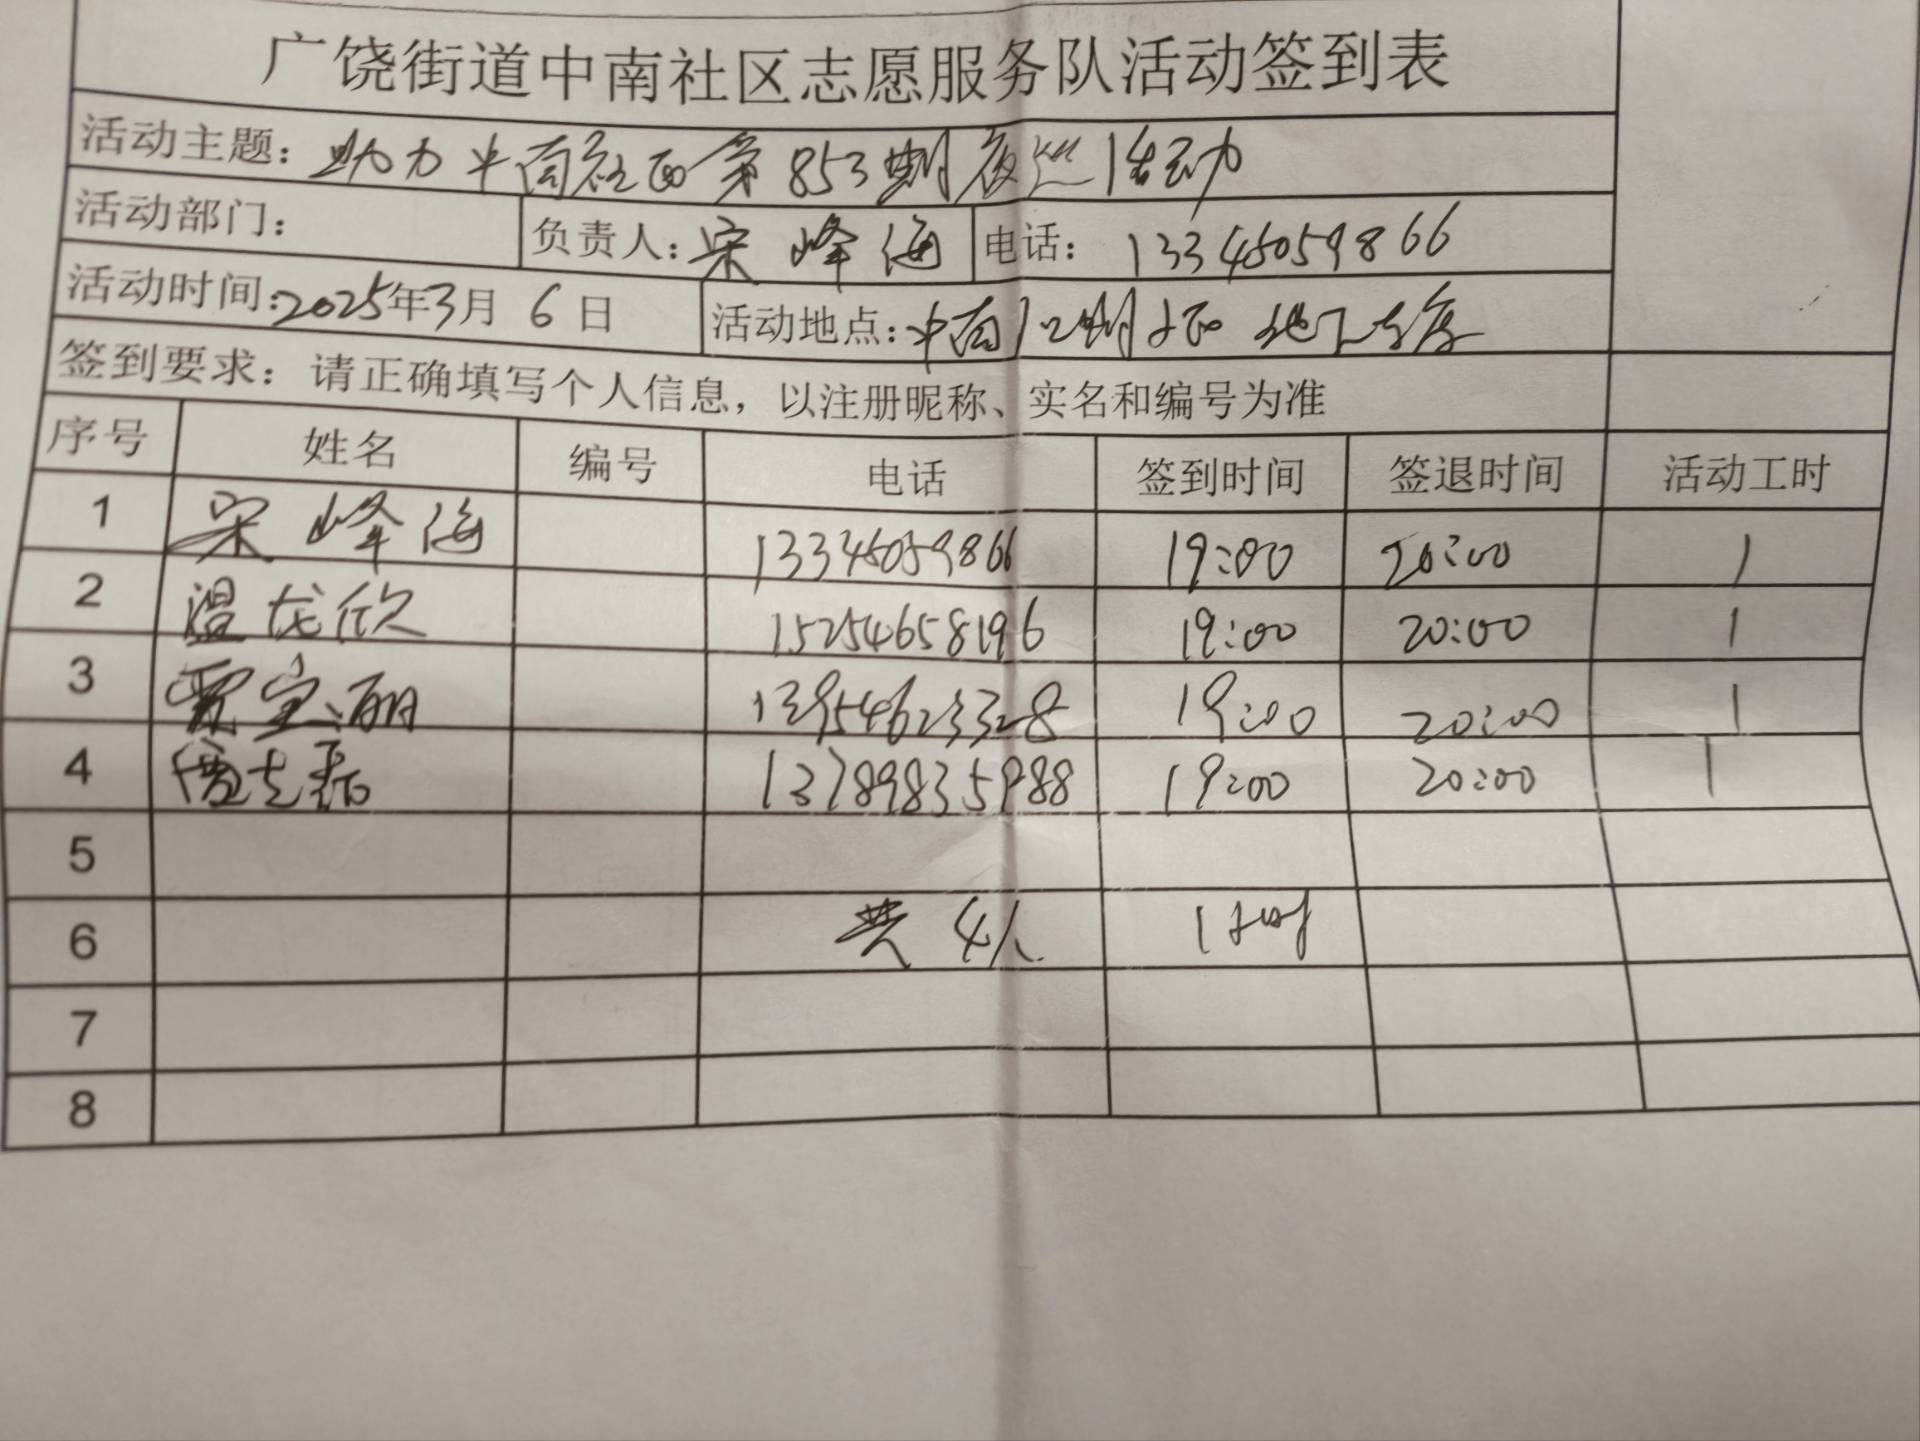 广饶街道中南社区志愿服务队活动签到表
活动主题：助力中南社区第853期夜巡活动
活动部门： 负责人：宋峰海 电话：13345059866
活动时间：2025年3月6日 活动地点：中南1、2期小区地下车库
签到要求：请正确填写个人信息，以注册昵称、实名和编号为准
序号 姓名 编号 电话 签到时间 签退时间 活动工时
1 宋峰海 13345059866 19:00 20:00 1
2 温龙欣 15254658196 19:00 20:00 1
3 贾宝丽 13954623328 19:00 20:00 1
4 13789835988 19:00 20:00 1
5
6 共4人 1小时
7
8